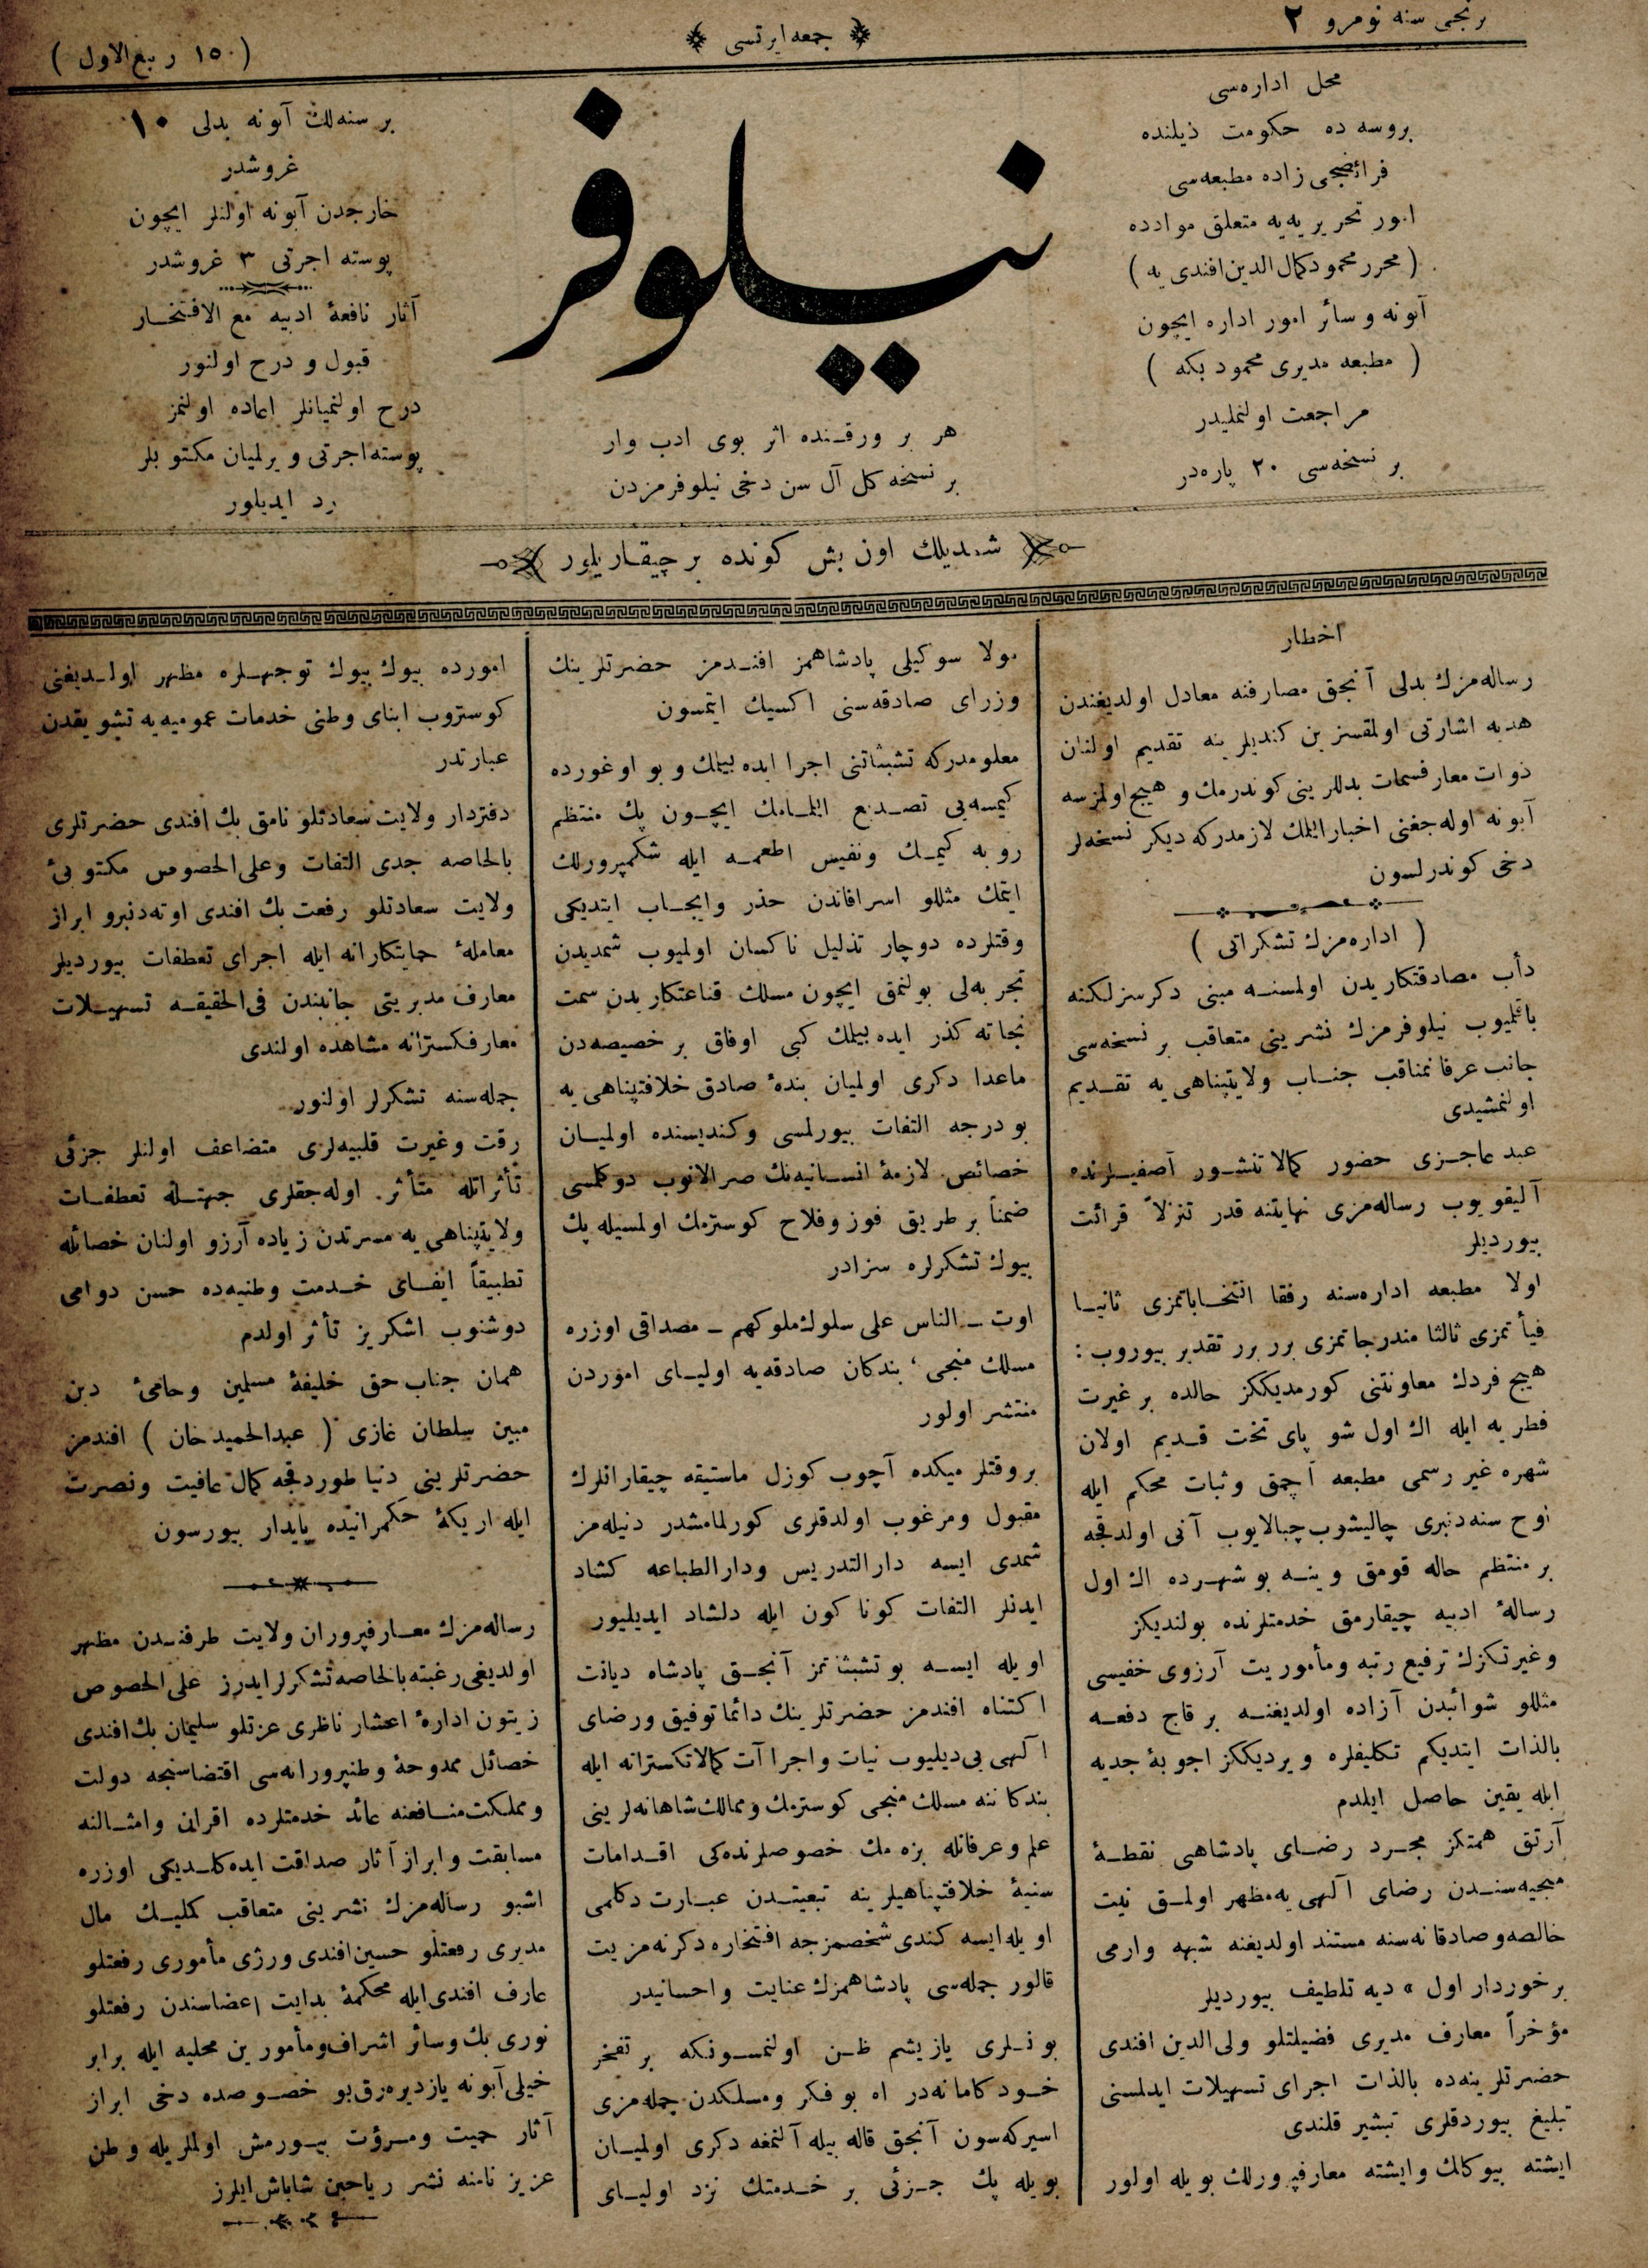 برنجی سنه نومرو ٢
جمعه ایرتسی
( ١٥ ربیع الاول )
محل اداره‌سی
بروسه ده حكومت ذیلنده
فرائضجی زاده مطبعه‌سی
امور تحریریه‌یه متعلق موادده
( محرر محمود كمال الدین افندی یه )
آبونه و سائر امور اداره ایچون
( مطبعه مدیری محمود بكه )
مراجعت اولنملیدر
بر نسخه‌سی ٢٠ پاره‌در
نیلوفر
هر بر ورقنده اثر بوی ادب وار
بر نسخه كل آل سن دخی نیلوفرمزدن
بر سنه‌لك آبونه بدلی ١٠
غروشدر
خارجدن آبونه اولنلر ایچون
پوسته اجرتی ٣ غروشدر
آثار نافعۀ ادبیه مع الافتخار
قبول و درج اولنور
درج اولنمیانلر اعاده اولنمز
پوسته اجرتی ویرلمیان مكتوبلر
رد ایدیلور
شمدیلك اون بش كونده بر چیقاریلور
اخطار
رساله‌مزك بدلی آنجق مصارفنه معادل اولدیغندن
هدیه اشارتی اولمقسزین كندیلرینه تقدیم اولنان
ذوات معارفسمات بدللرینی كوندرمك و هیچ اولمزسه
آبونه اوله‌جغنی اخبار ایلمك لازمدركه دیكر نسخه‌لر
دخی كوندرلسون
( اداره‌مزك تشكراتی )
دأب مصادقتكاریدن اولمسنه مبنی دكرسزلكنه
باقلمیوب نیلوفرمزك نشرینی متعاقب بر نسخه‌سی
جانب عرفانمناقب جناب ولایتپناهی یه تقدیم
اولنمشیدی
عبد عاجزی حضور كمالاتنشور آصفیلرنده
آلیقویوب رساله‌مزی نهایتنه قدر تنزلاً قرائت
بیوردیلر
اولا مطبعه اداره‌سنه رفقا انتخاباتمزی ثانیا
فیأتمزی ثالثا مندرجاتمزی برر برر تقدیر بیوروب :
هیچ فردك معاونتنی كورمدیككز حالده بر غیرت
فطریه ایله اك اول شو پای تخت قدیم اولان
شهره غیر رسمی مطبعه آچمق و ثبات محكم ایله
اوچ سنه‌دنبری چالیشوب چبالایوب آنی اولدقجه
بر منتظم حاله قومق وینه بو شهرده اك اول
رسالۀ ادبیه چیقارمق خدمتلرنده بولندیكز
وغیرتكزك ترفیع رتبه ومأموریت آرزوی خفیسی
مثللو شوائبدن آزاده اولدیغنه بر قاچ دفعه
بالذات ایتدیكم تكلیفلره ویردیككز اجوبۀ جدیه
ایله یقین حاصل ایلدم
آرتق همتكز مجرد رضای پادشاهی نقطۀ
منجیه‌سندن رضای آلهی یه مظهر اولمق نیت
خالصه و صادقانه‌سنه مستند اولدیغنه شبهه وارمی
برخوردار اول » دیه تلطیف بیوردیلر
مؤخراً معارف مدیری فضیلتلو ولی الدین افندی
حضرتلرینه‌ده بالذات اجرای تسهیلات ایدلمسنی
تبلیغ بیوردقلری تبشیر قلندی
ایشته بیوكلك وایشته معارفپرورلك بویله اولور
مولا سوكیلی پادشاهمز افندمز حضرتلرینك
وزرای صادقه‌سنی اكسیك ایتمسون
معلومدركه تشبثاتنی اجرا ایده بیلمك و بو اوغورده
كیمسه‌یی تصدیع ایلمامك ایچون پك منتظم
روبه كیمك ونفیس اطعمه ایله شكمپرورلك
ایتمك مثللو اسرافاتدن حذر وایجاب ایتدیكی
وقتلرده دوچار تذلیل ناكسان اولمیوب شمدیدن
تجربه‌لی بولنمق ایچون مسلك قناعتكاریدن سمت
نجاته كذر ایده بیلمك كبی اوفاق بر خصیصه‌دن
ماعدا دكری اولمیان بندۀ صادق خلافتپناهی یه
بو درجه التفات بیورلمسی وكندیسنده اولمیان
خصائص لازمۀ انسانیه‌نك صرالانوب دوكلمسی
ضمناً بر طریق فوز وفلاح كوسترمك اولمسیله پك
بیوك تشكرلره سزادر
اوت ـ الناس علی سلوك ملوكهم ـ مصداقی اوزره
مسلك منجی ، بندكان صادقه‌یه اولیای اموردن
منتشر اولور
بر وقتلر میكده آچوب كوزل ماستیقه چیقارانلرك
مقبول ومرغوب اولدقلری كورلمامشدر دنیله‌مز
شمدی ایسه دارالتدریس ودارالطباعه كشاد
ایدنلر التفات كوناكون ایله دلشاد ایدیلیور
اویله ایسه بو تشبثاتمز آنجق پادشاه دیانت
اكتناه افندمز حضرتلرینك دائما توفیق ورضای
آلهی یی دیلیوب نیات واجراآت كمالاتكسترانه ایله
بندكاننه مسلك منجی كوسترمك وممالك شاهانه‌لرینی
علم وعرفانله بزه‌مك خصوصلرنده‌كی اقدامات
سنیۀ خلافتپناهیلرینه تبعیتدن عبارت دكلمی
اویله ایسه كندی شخصمزجه افتخاره دكر نه مزیت
قالور جمله‌سی پادشاهمزك عنایت واحسانیدر
بونلری یازیشم ظن اولنمسونكه بر تفخر
خودكامانه‌در اه بو فكر ومسلكدن جمله‌مزی
اسیركه‌سون آنجق قاله بیله آلنمغه دكری اولمیان
بویله پك جزئی بر خدمتك نزد اولیای
امورده بیوك بیوك توجهلره مظهر اولدیغنی
كوستروب ابنای وطنی خدمات عمومیه‌یه تشویقدن
عبارتدر
دفتردار ولایت سعادتلو نامق بك افندی حضرتلری
بالخاصه جدی التفات وعلی الخصوص مكتوبیٔ
ولایت سعادتلو رفعت بك افندی اوته‌دنبرو ابراز
معاملۀ حمایتكارانه ایله اجرای تعطفات بیوردیلر
معارف مدیریتی جانبندن فی الحقیقه تسهیلات
معارفكسترانه مشاهده اولندی
جمله‌سنه تشكرلر اولنور
رقت وغیرت قلبیه‌لری متضاعف اولنلر جزئی
تأثراتله متأثر اوله‌جقلری جهتله تعطفات
ولایتپناهی یه مسرتدن زیاده آرزو اولنان خصائله
تطبیقاً ایفای خدمت وطنیه‌ده حسن دوامی
دوشنوب اشكریز تأثر اولدم
همان جناب حق خلیفۀ مسلمین وحامیٔ دین
مبین سلطان غازی ( عبدالحمید خان ) افندمز
حضرتلرینی دنیا طوردقجه كمال عافیت ونصرت
ایله اریكۀ حكمرانیده پایدار بیورسون
رساله‌مزك معارفپروران ولایت طرفندن مظهر
اولدیغی رغبته بالخاصه تشكرلر ایدرز علی الخصوص
زیتون ادارۀ اعشار ناظری عزتلو سلیمان بك افندی
خصائل ممدوحۀ وطنپرورانه‌سی اقتضاسنجه دولت
ومملكت منافعنه عائد خدمتلرده اقران وامثالنه
مسابقت وابراز آثار صداقت ایده كلدیكی اوزره
اشبو رساله‌مزك نشرینی متعاقب كملیك مال
مدیری رفعتلو حسین افندی ورژی مأموری رفعتلو
عارف افندی ایله محكمۀ بدایت اعضاسندن رفعتلو
نوری بك وسائر اشراف ومأمورین محلیه ایله برابر
خیلی آبونه یازدیره‌رق بو خصوصده دخی ابراز
آثار حمیت ومروٴت بیورمش اولملریله وطن
عزیز نامنه نشر ریاحین شاباش ایلرز